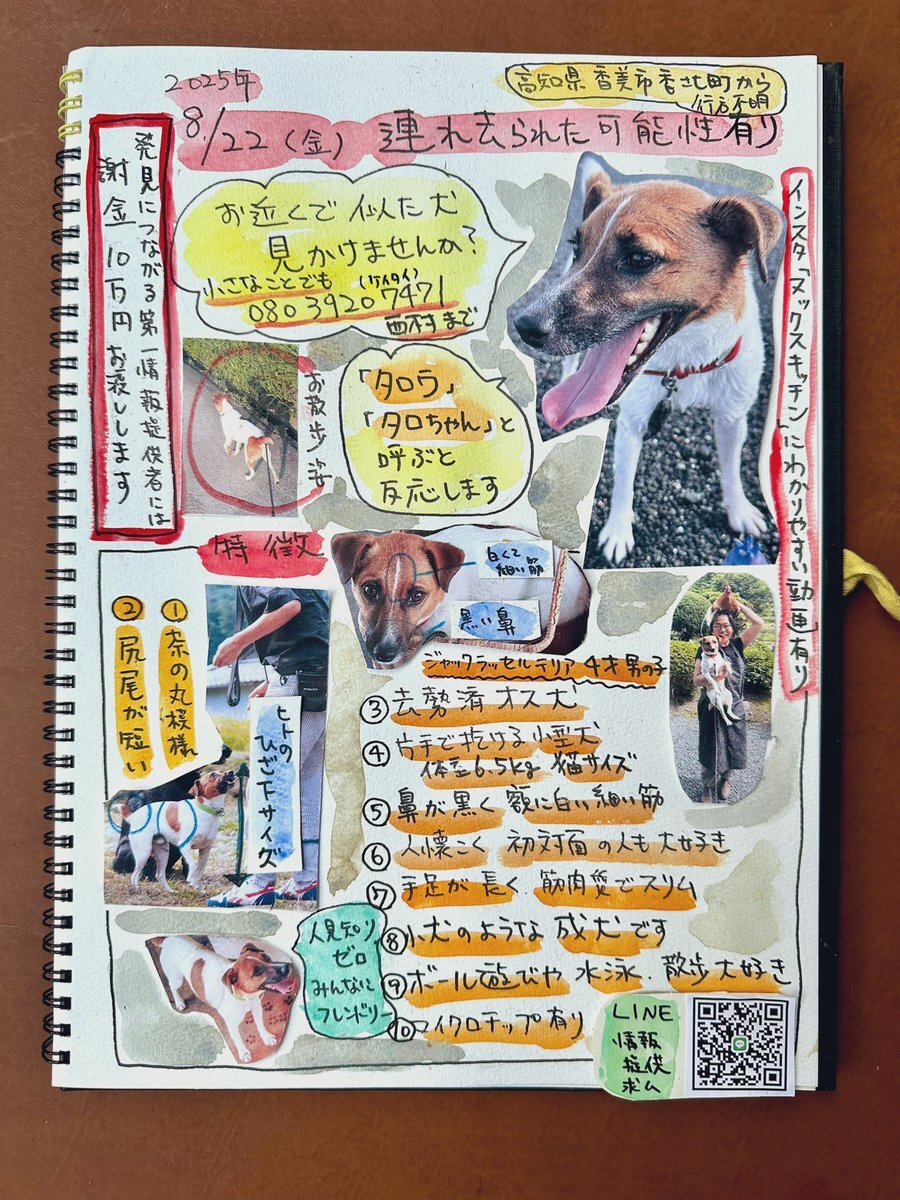 2025年
高知県香美市香北町から
行方不明
8/22（金） 連れ去られた可能性有り
発見につながる第一情報提供者には
謝金10万円お渡しします
お近くで似た犬
見かけませんか？
小さなことでも（ケイタイ）
080 3920 7471
西村まで
インスタ「ヌックスキッチン」にわかりやすい動画有り
お散歩姿
「タロウ」
「タロちゃん」と
呼ぶと
反応します
特徴
白くて
細い筋
黒い鼻
①茶の丸模様
②尻尾が短い
ヒトの
ひざ下サイズ
ジャックラッセルテリア 4才男の子
③去勢済オス犬
④片手で抱ける小型犬
体重6.5kg 猫サイズ
⑤鼻が黒く 額に白い細い筋
⑥人懐こく 初対面の人も大好き
⑦手足が長く、筋肉質でスリム
⑧小犬のような成犬です
⑨ボール遊びや 水泳、散歩大好き
⑩マイクロチップ有り
人見知り
ゼロ
みんなに
フレンドリー
LINE
情報
提供
求ム